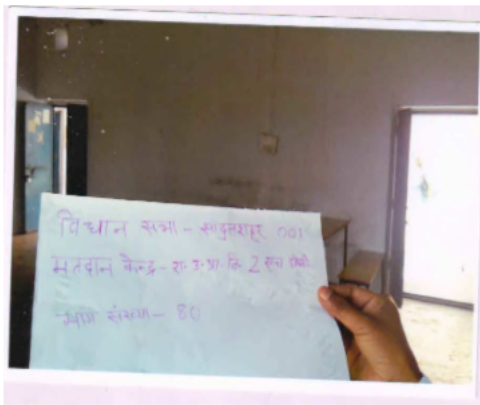 विधान सभा - सादुलशहर 001
मतदान केन्द्र - रा. उ. प्रा. वि. 2 एच
भाग संख्या - 80